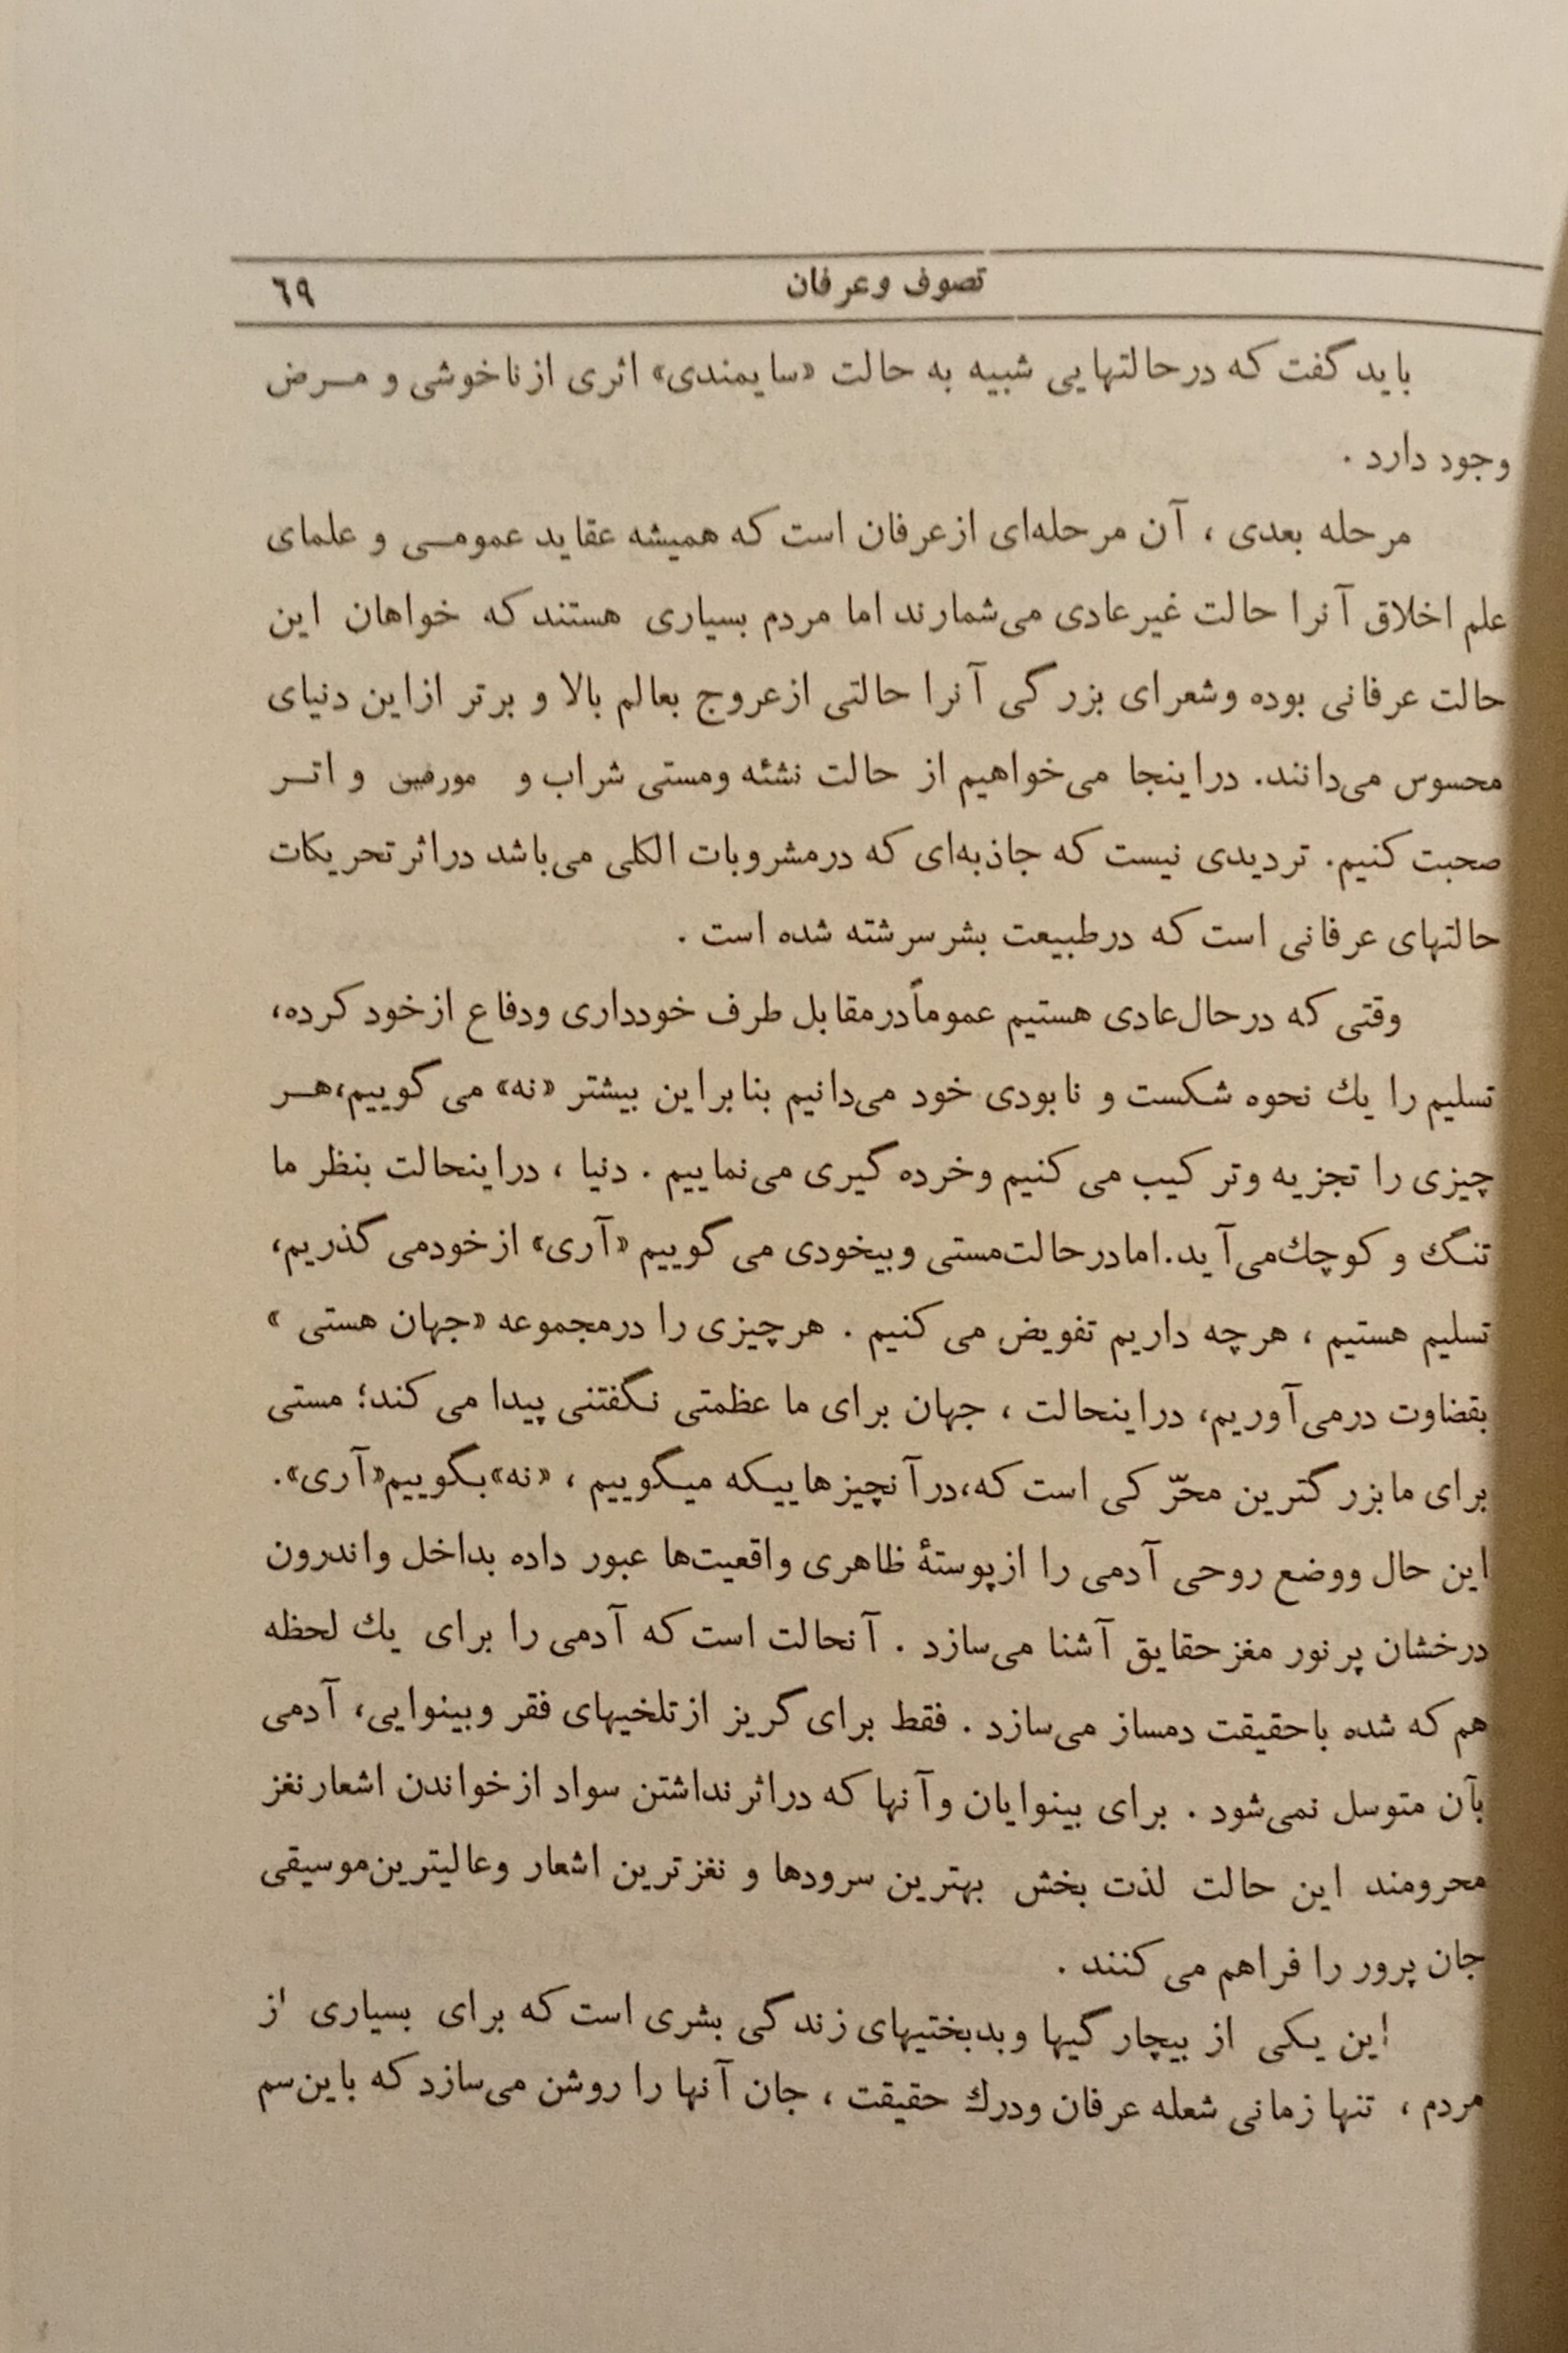 تصوف و عرفان ٦٩
باید گفت که در حالتهایی شبیه به حالت «سایمندی» اثری از ناخوشی و مـرض
وجود دارد .
مرحله بعدی ، آن مرحله‌ای از عرفان است که همیشه عقاید عمومـی و علمای
علم اخلاق آنرا حالت غیر عادی می‌شمارند اما مردم بسیاری هستند که خواهان این
حالت عرفانی بوده و شعرای بزرگی آنرا حالتی از عروج بعالم بالا و برتر از این دنیای
محسوس می‌دانند. در اینجا می‌خواهیم از حالت نشئه و مستی شراب و مورفین و اتـر
صحبت کنیم. تردیدی نیست که جاذبه‌ای که در مشروبات الکلی می‌باشد در اثر تحریکات
حالتهای عرفانی است که در طبیعت بشر سرشته شده است .
وقتی که در حال عادی هستیم عموماً در مقابل طرف خودداری و دفاع از خود کرده،
تسلیم را یك نحوه شکست و نابودی خود می‌دانیم بنابراین بیشتر «نه» می گوییم، هـر
چیزی را تجزیه و ترکیب می کنیم و خرده گیری می‌نماییم . دنیا ، در اینحالت بنظر ما
تنگ و کوچك می‌آید. اما در حالت مستی و بیخودی می گوییم «آری» از خود می گذریم،
تسلیم هستیم ، هر چه داریم تفویض می کنیم . هر چیزی را در مجموعه «جهان هستی »
بقضاوت درمی‌آوریم، در اینحالت ، جهان برای ما عظمتی نگفتنی پیدا می کند؛ مستی
برای ما بزرگترین محرّکی است که، در آنچیزهاییکه میگوییم ، «نه» بگوییم «آری».
این حال و وضع روحی آدمی را از پوستهٔ ظاهری واقعیت‌ها عبور داده بداخل و اندرون
درخشان پر نور مغز حقایق آشنا می‌سازد . آنحالت است که آدمی را برای یك لحظه
هم که شده با حقیقت دمساز می‌سازد . فقط برای گریز از تلخیهای فقر و بینوایی، آدمی
بآن متوسل نمی‌شود . برای بینوایان و آنها که در اثر نداشتن سواد از خواندن اشعار نغز
محرومند این حالت لذت بخش بهترین سرودها و نغزترین اشعار و عالیترین موسیقی
جان پرور را فراهم می کنند .
این یکی از بیچارگیها و بدبختیهای زندگی بشری است که برای بسیاری از
مردم ، تنها زمانی شعله عرفان و درك حقیقت ، جان آنها را روشن می‌سازد که باین سم